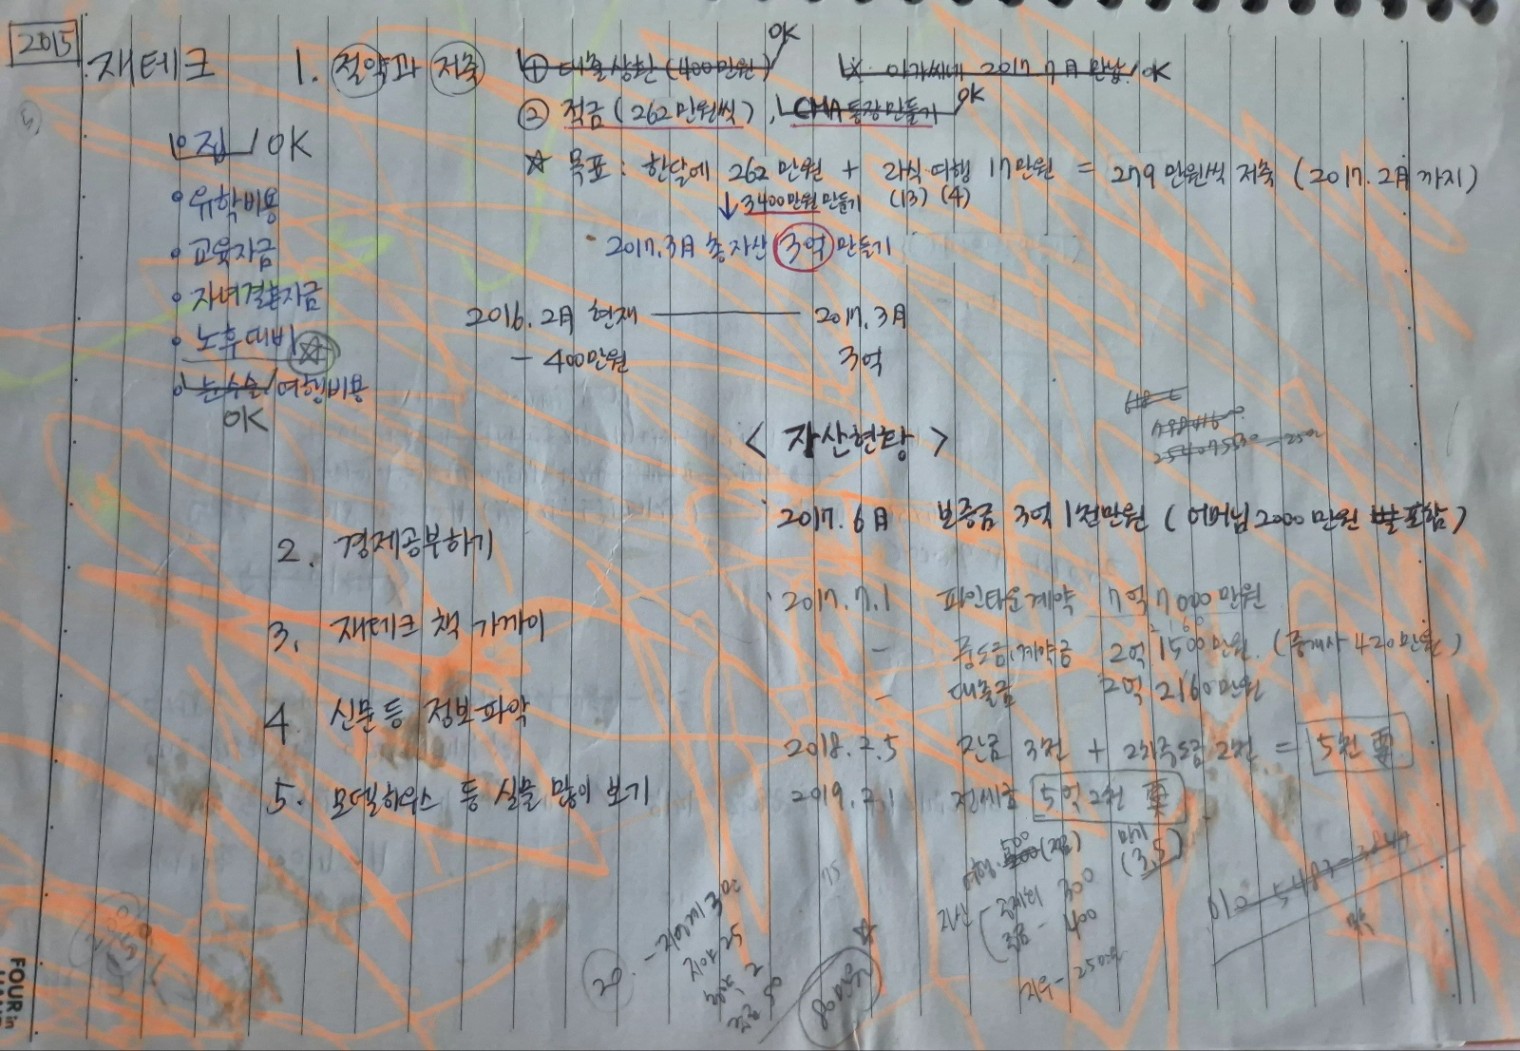 2015
재테크
1. 절약과 저축
① 대출상환 (400만원) OK
② 적금 (262만원씩), CHA통장만들기 OK
2017 7月 만남 OK
☆ 목표 : 한달에 262만원 + 과식여행 17만원 = 279만원씩 저축 (2017. 2月까지)
↓ 3400만원 만들기 (13) (4)
2017. 3月 총자산 3억 만들기
• 집 OK
• 유학비용
• 교육자금
• 자녀결혼자금
• 노후대비 ☆
• 눈수술/여행비용
OK
2016. 2月 현재 — 2017. 3月
- 400만원 3억
< 자산현황 >
2017. 6月 보증금 3억 1천만원 (어머님 2000만원 포함)
2017. 7. 1 파인타운계약 7억 7000만원
- 중도금, 계약금 2억 1500만원. (중개사 420만원)
- 대출금 2억 2160만원
2018. 2. 5 잔금 3천 + 2천 = 5천
2019. 2. 1 전세금 5억 2천
2. 경제공부하기
3. 재테크 책 가까이
4 신문 등 정보파악
5. 모델하우스 등 실물 많이 보기
여행. 500
만기
(3,5)
300
400
20.
25
2
50
80만원 ☆
75
지우 - 250만원
FOUR in